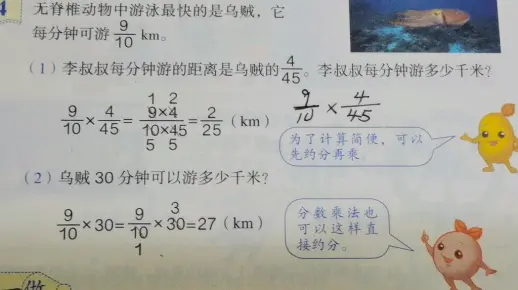 4
无脊椎动物中游泳最快的是乌贼，它
每分钟可游 9/10 km。
（1）李叔叔每分钟游的距离是乌贼的 4/45。李叔叔每分钟游多少千米？
1 2
9/10 × 4/45 = 9×4/10×45 = 2/25 (km)
5 5
9/10 × 4/45
为了计算简便，可以
先约分再乘。
（2）乌贼 30 分钟可以游多少千米？
3
9/10 ×30= 9/10 ×30=27 (km)
1
分数乘法也
可以这样直
接约分。
做